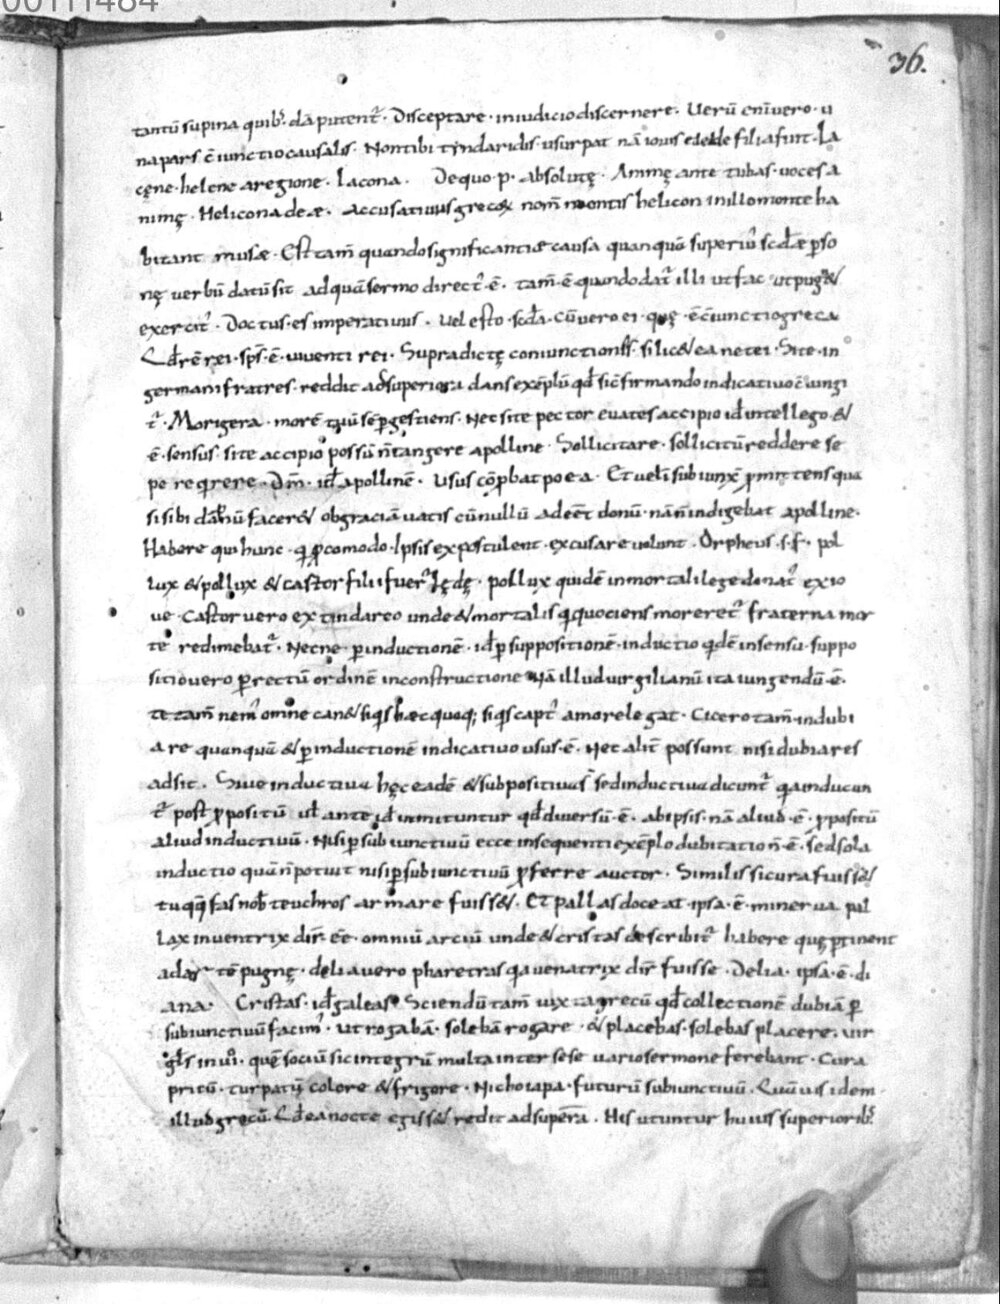 00111484
36.
tantū supina quib; dā putent᷑. Disceptare · iniudicio discernere. Uerū enīuero · u
na pars ē iunctio causalis. Nontibi tyndaridis · usurpat nā iouis & ledę filia fuit. La
cęne · helene aregione · lacona. Dequo · p · absolutę. Ammę ante tubas · uocesa
nimę · Helicona deæ. accusatiuus grecæ nom̄ montis helicon inillo monte ha
bitant musæ. Est tam̄ quando significantiæ causa quanquā superiu᷒ scdæ pso
nę uerbū datū sit adquā sermo direct᷒ ē. tam̄ ē quando dat᷑ illi ut fac ut pugn&
exercit᷒. Doctus · es imperatiuus. Uel esto · scda · cū uero ei · quę · ē cūiunctio greca
rei · sps · ē · uiuenti rei. Supradictę coniunctionis si lic& ea ne tei. Site · in
germani fratres · reddit ad superiora dans exēplū qd sic firmando indicatiuo cōiungi
t᷑. Morigera · morē tuū sēp gestiens. Nec site pector euates accipio id intellego · &
ē · sensus · si te accipio possū n̄ tangere apolline. Sollicitare · sollicitū reddere se
pe reqrere. Dm̄ · id apollinē. Usus cōpbat poeta. Et uelī subiunx̄ pmittens qua
si sibi dānū facer& ob graciā uatis cū nullū ade&̄ donū · nā n̄ indigebat apolline.
Habere qui hunc · q pcomodo · Ipsis expostulent · excusare uolunt. Orpheus · s · f · pol
lux & pollux & castor filii fuer᷑ lędę · pollux quidē inmortali lege donat᷒ exio
ue · Castor uero ex tindareo unde & mortalis q quociens moreret᷑ fraterna mor
te redimebat᷑. Necne · p inductionē · id p suppositionē · inductio qdē insensu · suppo
sitio uero p rectū ordinē inconstructione Nā illud uirgilianū ita iungendū · ē ·
te tam̄ nem᷒ omne can& siqs hæc quoq; siqs capt᷒ amore legat · Cicero tam̄ indubi
are quanquā & p inductionē indicatiuo usus · ē. Nec alit̄ possunt nisi dubia res
adsit. Siue inductiua hęc eadē & subpositiua sed inductiua dicunt᷑ qa inducun
t᷑ post ppositū ul ante id inmituntur qd diuersū · ē · ab ipsis · nā aliud · ē · ppositū
aliud inductiuū. Nisi p subiunctiuū ecce insequenti exēplo dubitatio n̄ ē · sed sola
inductio quā n̄ potuit nisi p subiunctiuū pferre auctor. Similis si cura fuiss&
tu qq fas nob teuchros armare fuiss&. Et pallas doceat · ipsa · ē · minerua. pal
lax inuentrix dir̄ · ēē · omniū arciū unde & cristas describit᷑ habere quę ptinent
ad artē pugnę · delia uero pharetras qa uenatrix dir̄ fuisse. Delia · ipsa · ē · di
ana. Cristas · id galeas. Sciendū tam̄ uix ta grecū qd collectionē dubiā p
subiunctiuū facim᷒. ut rogabā · solebā rogare · & placebas · solebas placere. uir
gls in ui · quę sociū sic integrū multa inter sese uario sermone ferebant. Cura
pritū · turpatū colore & frigore. Nicho iapa · futurū subiunctiuū. Quāuis idem
illud grecū. Ld ea nocte egiss& redit ad supera. His utuntur huius superiorib;